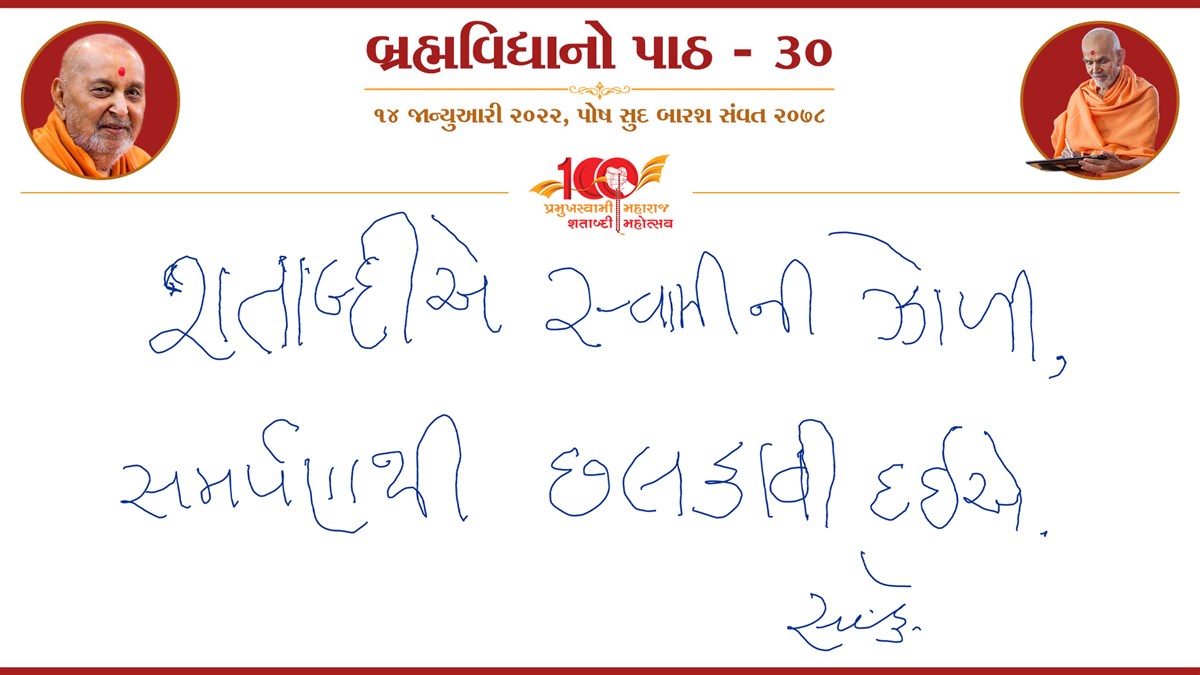 બ્રહ્મવિદ્યાનો પાઠ - ૩૦
૧૪ જાન્યુઆરી ૨૦૨૨, પોષ સુદ બારશ સંવત ૨૦૭૮
100
પ્રમુખસ્વામી મહારાજ
શતાબ્દી મહોત્સવ
શતાબ્દીએ સ્વામીની ઝોળી,
સમર્પણથી છલકાવી દઈએ.